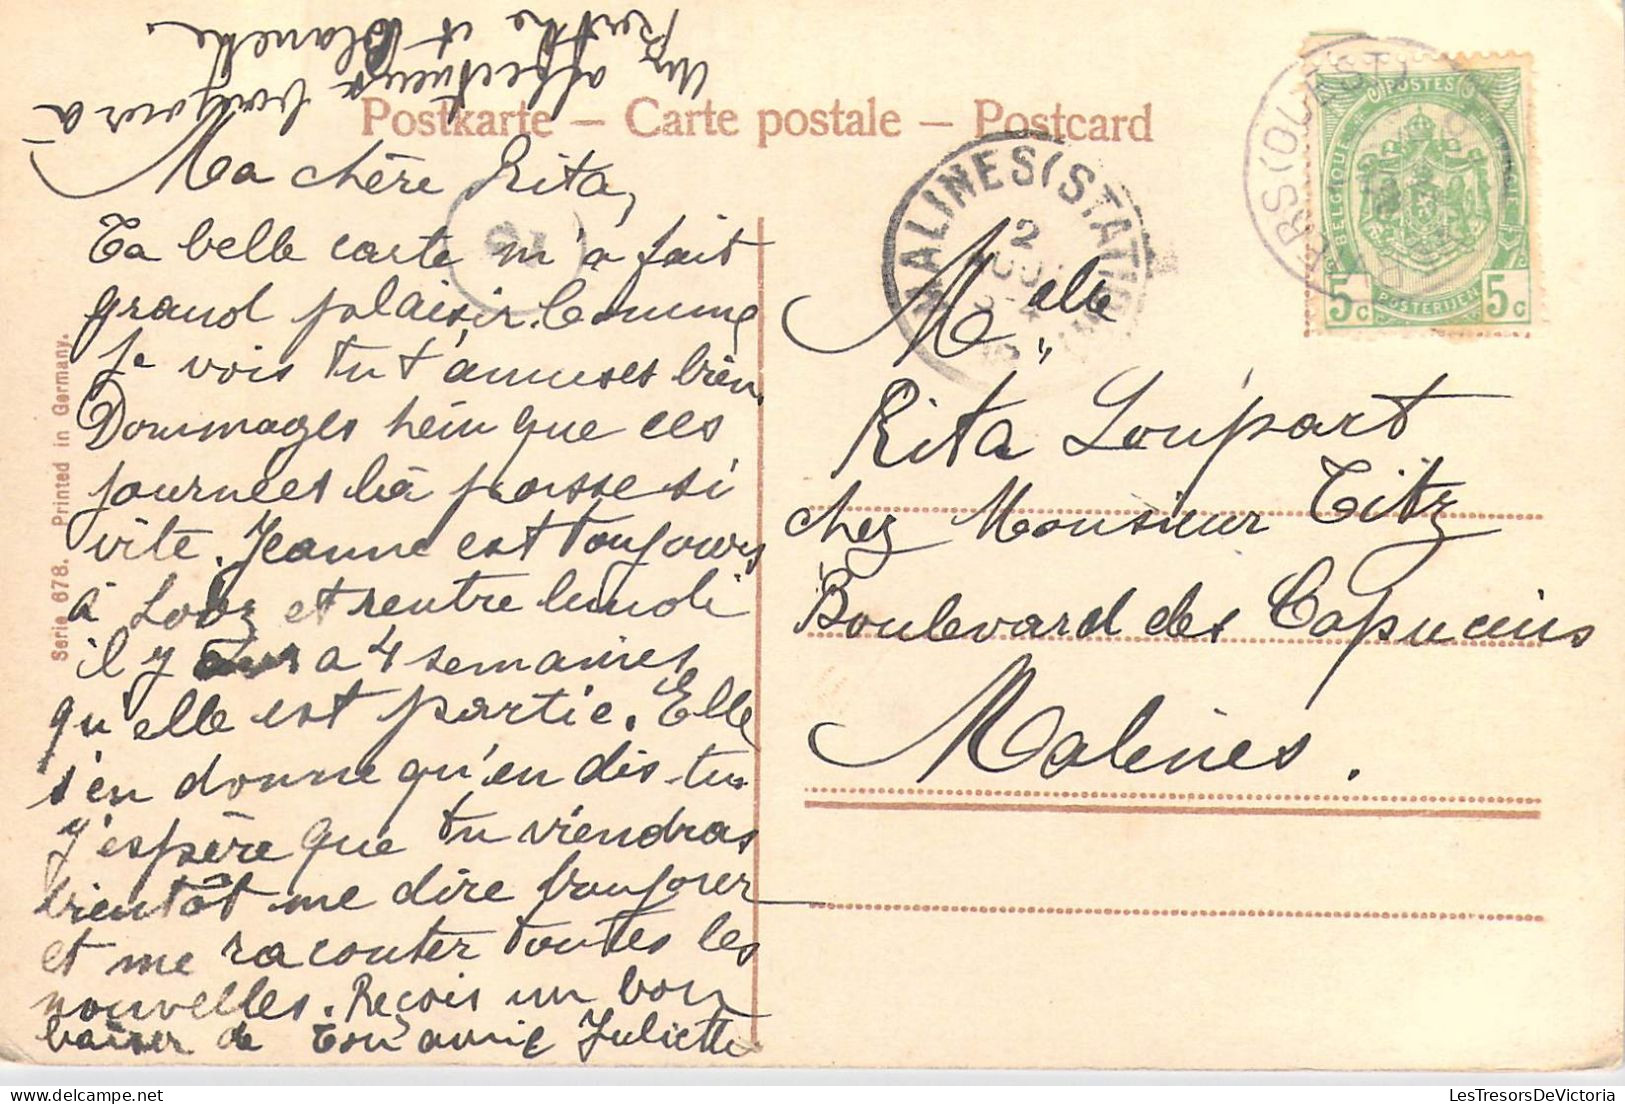 Un affectueux bonjour à
Berthe et Blanche.
Postkarte – Carte postale – Postcard
Ma chère Rita,
Ta belle carte m'a fait
grand plaisir. Comme
je vois tu t'amuses bien
Dommages hein que ces
journées là passe si
vite. Jeanne est toujours
à Lobz et rentre lundi
il y a 4 semaines
qu'elle est partie. Elle
s'en donne qu'en dis-tu
J'espère que tu viendras
bientôt me dire bonjour
et me raconter toutes les
nouvelles. Reçois un bon
baiser de ton amie Juliette
Serie 678. Printed in Germany.
MALINES (STATION)
2
POSTES
BELGIQUE
BELGIË
5c POSTERIJEN 5c
(OUEST)
Melle
Rita Loupart
chez Monsieur Titz
Boulevard des Capucins
Malines.
LesTresorsDeVictoria.com
LesTresorsDeVictoria